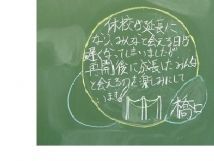 休校が延長に
なり、みんなと会える日が
遅くなってしまいましたが
再開後に成長したみんな
と会えるのを楽しみにして
います。
橋口